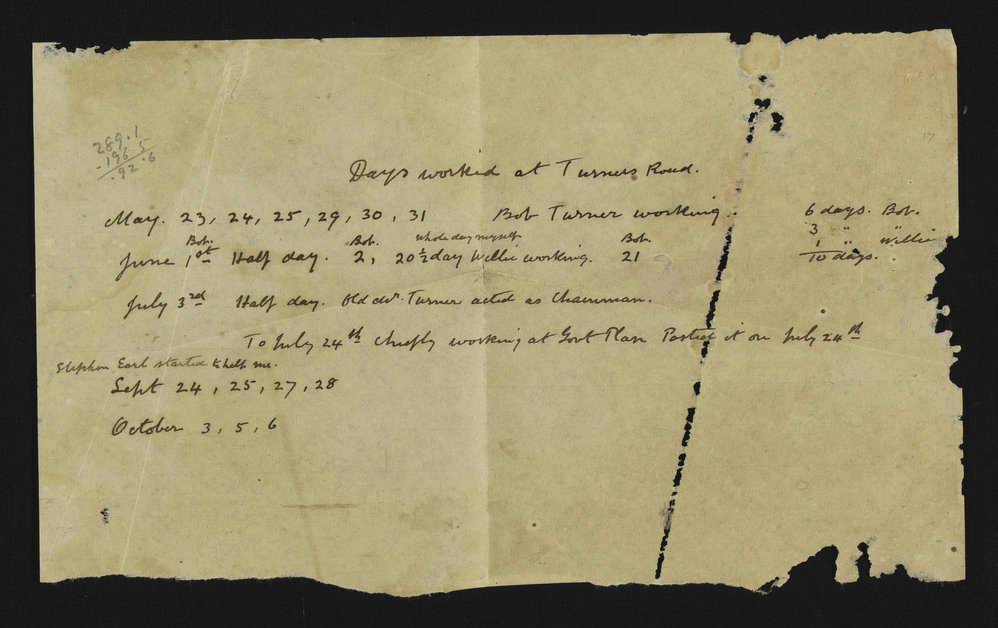 289.1
-196.5
.92.6
Days worked at Turners Road.
May. 23, 24, 25, 29, 30, 31 Bob Turner working.. 6 days. Bob.
3 " "
Bob. Bob. whole day myself Bob. 1 " Willie
June 1st Half day. 2, 20 ½ day Willie working. 21 10 days.
July 3rd Half day. Old Mr. Turner acted as Chainman.
To July 24th Chiefly working at Govt Plan Posted it on July 24th
Stephen Earl started to help me.
Sept 24, 25, 27, 28
October 3, 5, 6